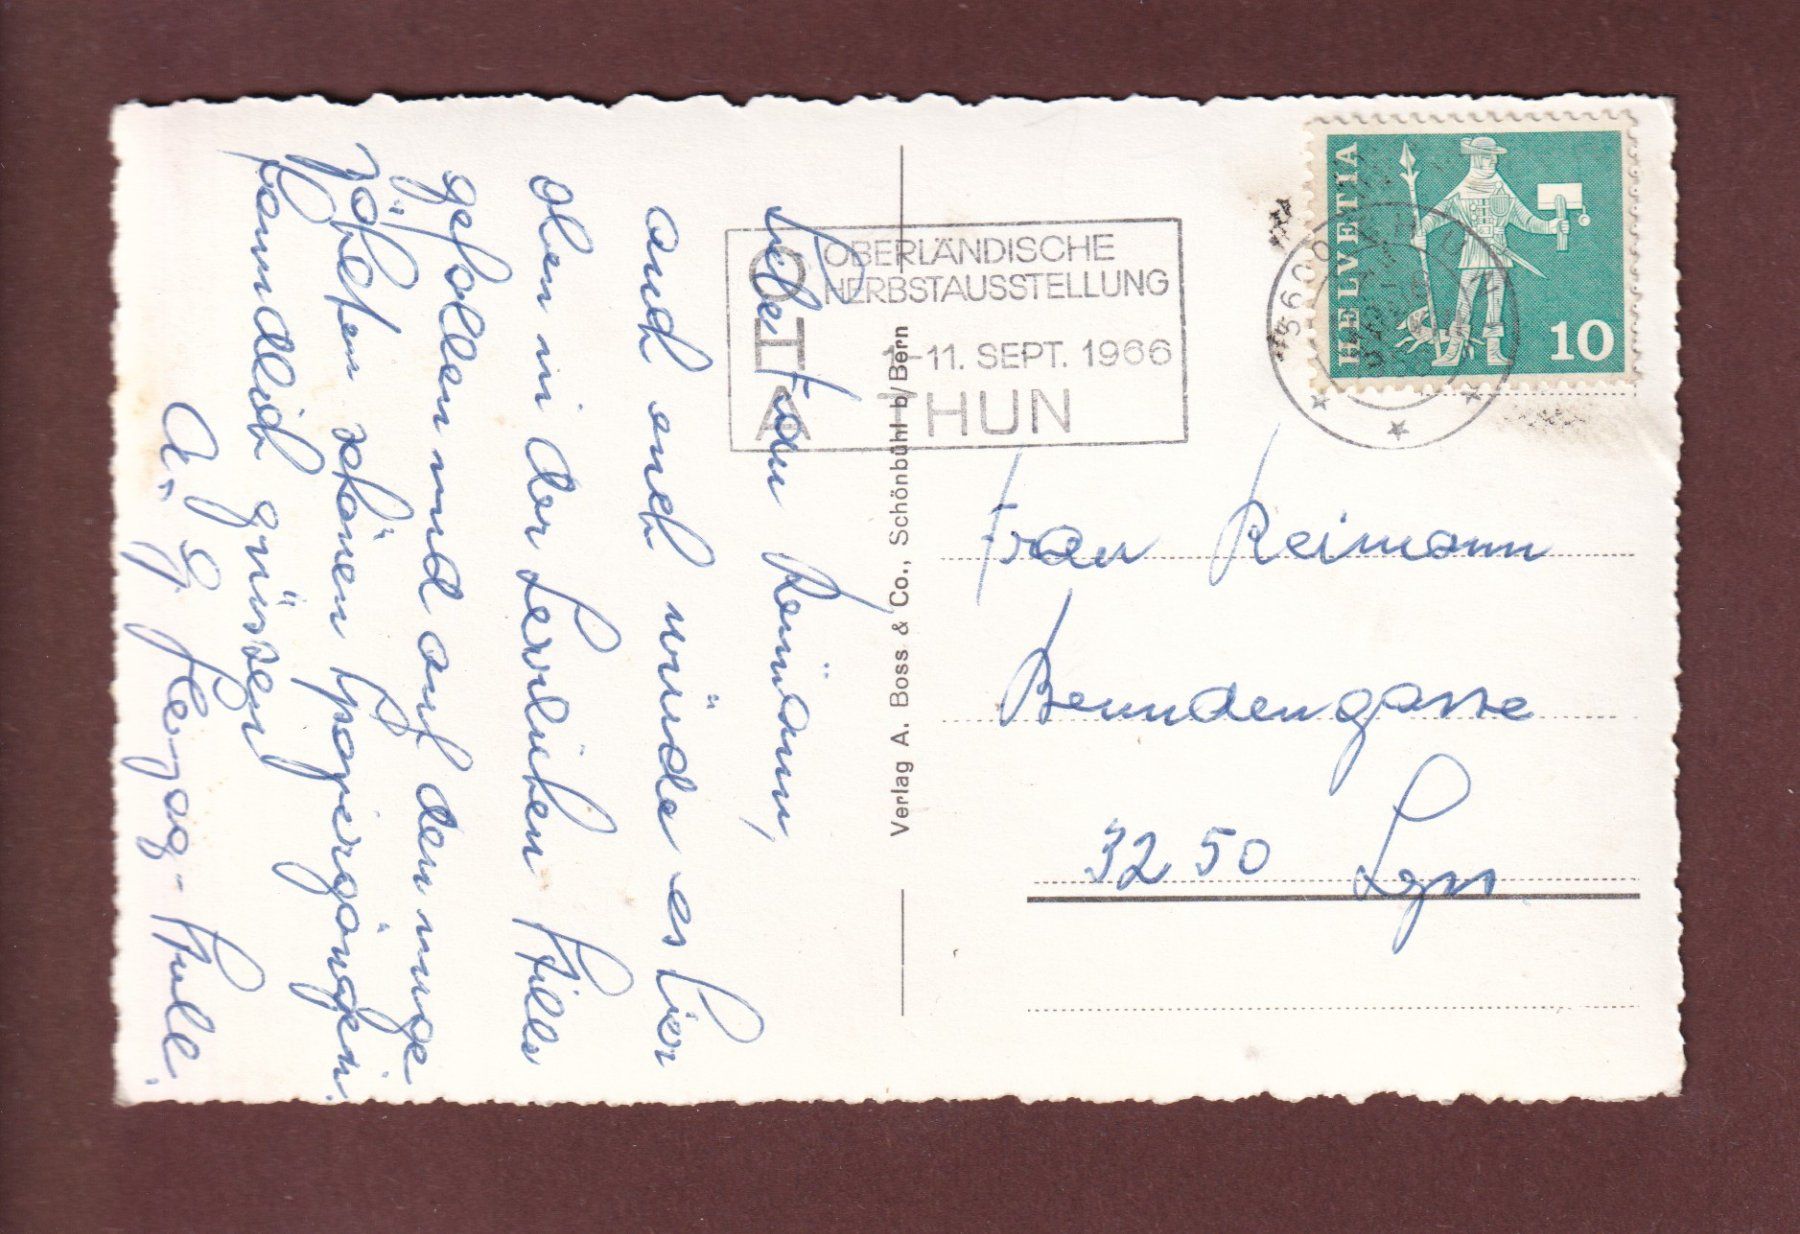 Liebe Frau Reimann,
auch euch würde es hier
oben in der herrlichen Stille
gefallen und auf den unge
zählten schönen Spaziergängen.
Freundlich grüssen
A. u. G. Herzog-
OHA
OBERLÄNDISCHE
HERBSTAUSSTELLUNG
1-11. SEPT. 1966
THUN
3600 THUN
HELVETIA
10
Verlag A. Boss & Co., Schönbühl b/Bern
Frau Reimann
3250 Lyss